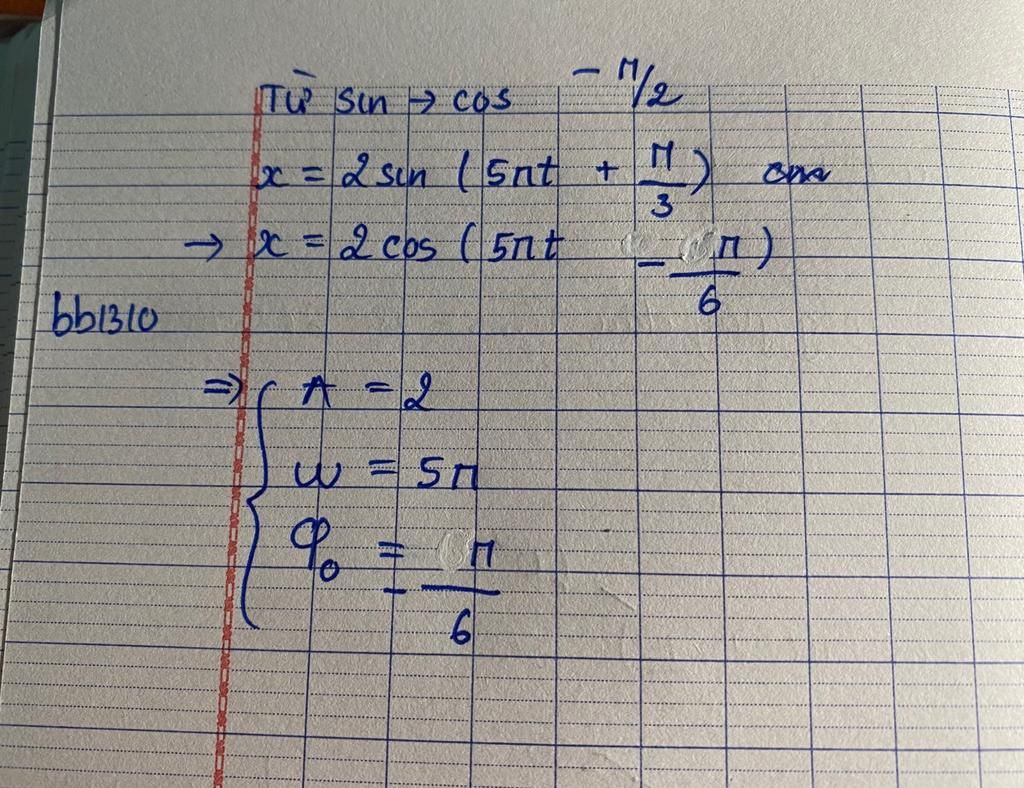 Từ sin → cos - π/2
x = 2 sin ( 5πt + π/3 ) cm
→ x = 2 cos ( 5πt - π/6 )
bb1310
⇒ { A = 2
ω = 5π
φ₀ = - π/6